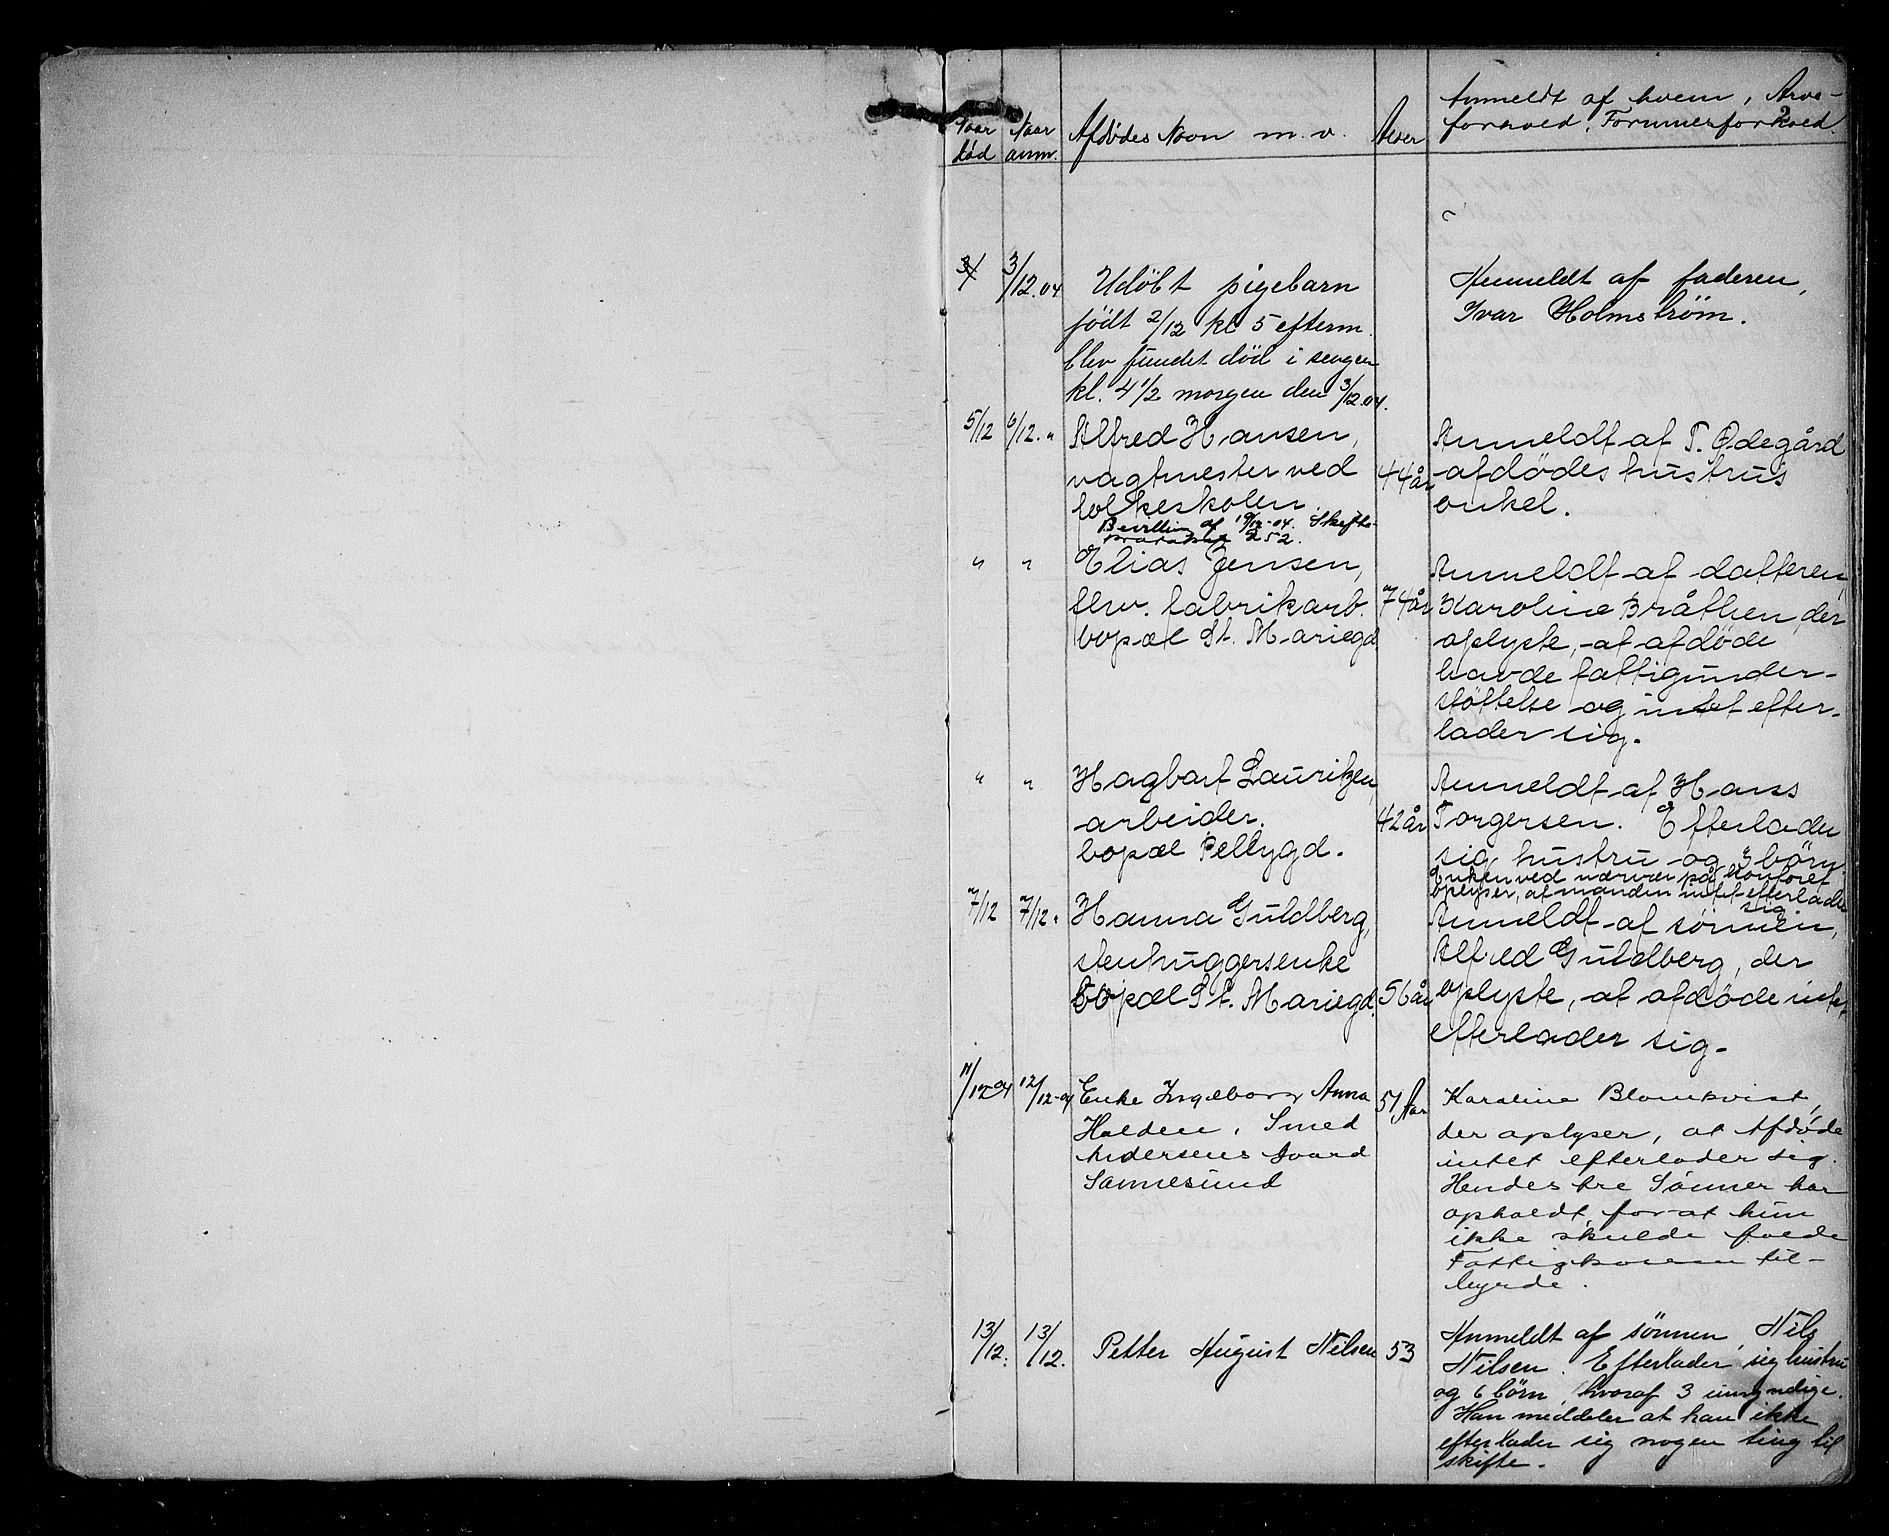 Naar død | Naar anm. | Afdødes Navn m. v. | Alder | Anmeldt af hvem, Arve-
forhold, Formuesforhold.
2
3/ | 3/12.04 | Udöbt pigebarn | Anmeldt af faderen,
födt 2/12 kl 5 efterm. | Ivar Holmström.
blev fundet död i sengen
kl. 4 1/2 morgen den 3/12.04.
5/12 | 6/12. " | Alfred Hansen, | Anmeldt af T. Ødegård
vagtmester ved | 44 år | afdödes hustrus
folkeskolen. | onkel.
Bevilling af 19/12-04. Skifte-
protokol 252.
" | " | Elias Jensen, | Anmeldt af datteren
fhv. fabrikarb. | 74 år | Karoline Bråthen, der
bopæl St. Mariegd. | oplyste, at afdöde
havde fattigunder-
støttelse og intet efter-
lader sig.
" | " | Hagbart Lauritzen, | Anmeldt af Hans
arbeider. | 42 år | Torgersen. Efterlader
bopæl Pellygd. | sig hustru og 3 börn.
Enken ved nærvær på kontoret
oplyser, at manden intet efterlader
sig.
7/12 | 7/12. " | Hanna Guldberg, | Anmeldt af sönnen,
stenhuggersenke | Alfred Guldberg, der
bopæl St. Mariegd. | 56 år | oplyste, at afdöde intet
efterlader sig.
11/12-04 | 12/12-04 | Enke Ingeborg Anna | 51 Aar | Karoline Blomkvist,
Halden, Smed | der oplyser, at Afdøde
Andersens Gaard | intet efterlader sig.
Sannesund | Hendes tre Sønner har
opholdt, for at hun
ikke skulde falde
Fattigkassen til-
byrde.
13/12. | 13/12. | Petter August Nilsen | 53 | Anmeldt af sönnen, Nils
Nilsen. Efterlader sig hustru
og 6 börn, hvoraf 3 umyndige.
Han meddeler at han ikke
efterlader sig nogen ting til
skifte.